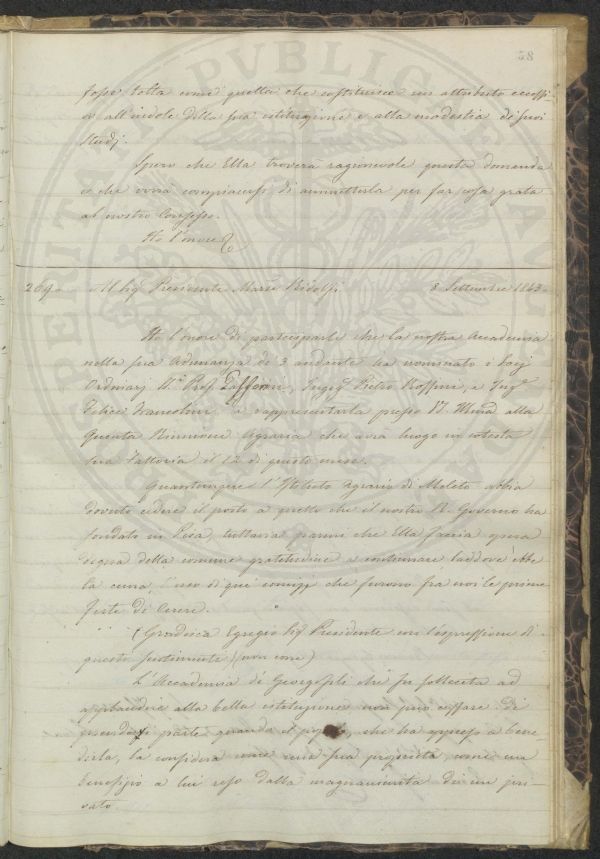 58
fosse tolta come quella che costituisce un attributo eccessi-
vo all'indole della sua istituzione e alla modestia de' suoi
studj.
Spero che Ella troverà ragionevole questa domanda
e che vorrà compiacersi di ammetterla per far cosa grata
al nostro Consesso.
Ho l'onore &
269. Al Sig Presidente March Ridolfi 8 Settembre 1843
Ho l'onore di parteciparle che la nostra Accademia
nella sua Adunanza de' 3 andante ha nominato i Socj
Ordinarj Prof. Taffoni, Ingg Pietro Rossini, e Ing
Felice Francolini a rappresentarla presso alla
Quinta Riunione Agraria che avrà luogo in cotesta
sua Fattoria il 12 di questo mese.
Quantunque l'Istituto Agrario di Meleto abbia
dovuto cedere il posto a quello che il nostro R. Governo ha
fondato in Pisa, tuttavia panni che Ella faccia opera
degna della comune gratitudine a continuare laddove ebbe
la cuna, l'uso di que' convegni che furono fra noi le prime
feste di Cerere.
(Gradisca Egregio Sig Presidente con l'espressione di
questi sentimenti) (non come)
L'Accademia de' Georgofili che fu sollecita ad
applaudire alla bella istituzione non può cessare di
prendervi parte quando il, che ha appreso a bene
dirla, la considera come una sua proprietà, come un
benefizio a lui reso dalla magnanimità di un pri-
vato.
PVBLICAE
PROSPERITATI
AVGENDAE